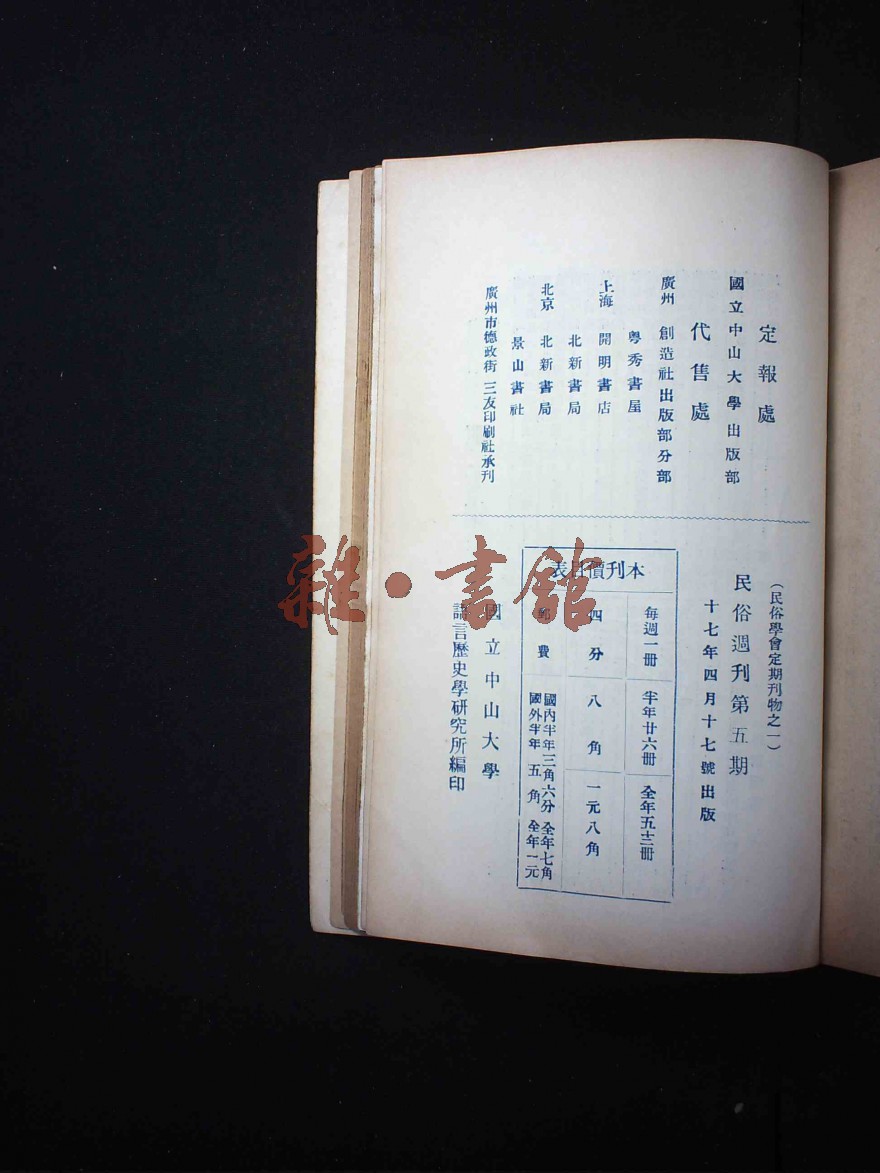 定報處
國立中山大學出版部
代售處
廣州 創造社出版部分部
粤秀書屋
上海 開明書店
北新書局
北京 北新書局
景山書社
廣州市德政街三友印刷社承刊
(民俗學會定期刊物之一)
民俗週刊第五期
十七年四月十七號出版
本刋價目表
每週一册 半年廿六册 全年五十二册
四分 八角 一元八角
郵費 國內半年三角六分 全年七角
國外半年五角 全年一元
國立中山大學
語言歷史學研究所編印
雜·書館